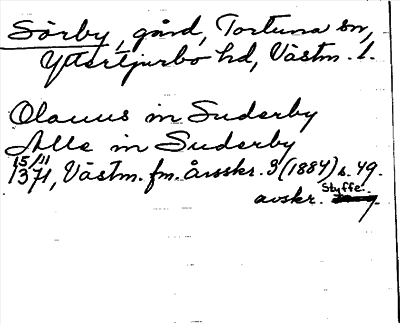 Sörby, gård, Tortuna sn,
Yttertjurbo hd, Västm. l.
Olauus in Suderby
Alle in Suderby
15/11
1371, Västm. fm. årsskr. 3 (1884) s. 49.
avskr. Styffe.